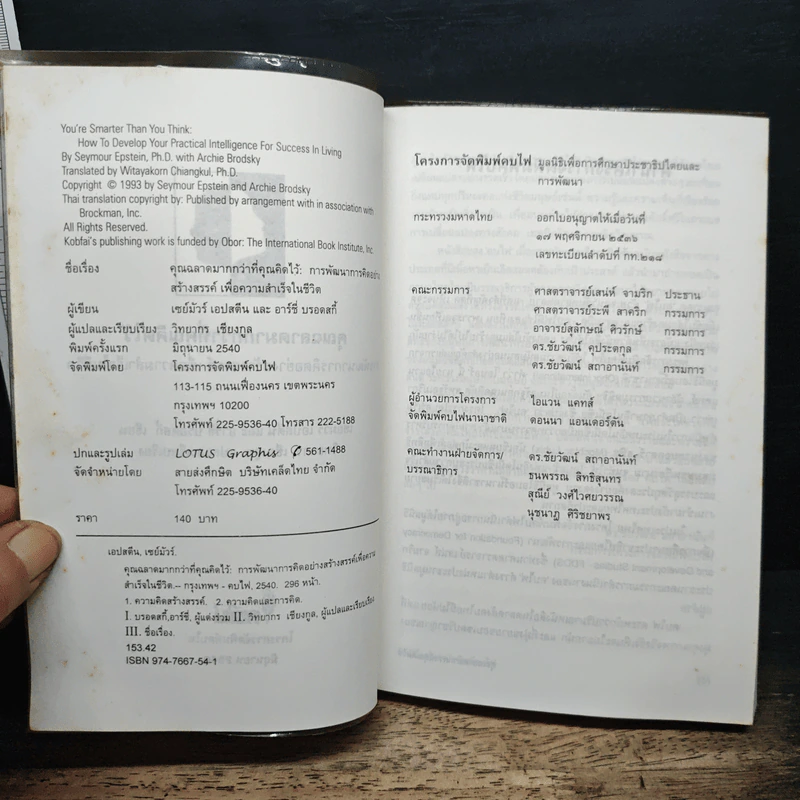 You're Smarter Than You Think:
How To Develop Your Practical Intelligence For Success In Living
By Seymour Epstein, Ph.D. with Archie Brodsky
Translated by Witayakorn Chiangkul, Ph.D.
Copyright © 1993 by Seymour Epstein and Archie Brodsky
Thai translation copyright: Published by arrangement with in association with
Brockman, Inc.
All Rights Reserved.
Kobfai's publishing work is funded by Obor: The International Book Institute, Inc.
ชื่อเรื่อง คุณฉลาดมากกว่าที่คุณคิดไว้: การพัฒนาการคิดอย่าง
สร้างสรรค์ เพื่อความสำเร็จในชีวิต
ผู้เขียน เซย์มัวร์ เอปสตีน และ อาร์ชี่ บรอดสกี้
ผู้แปลและเรียบเรียง วิทยากร เชียงกูล
พิมพ์ครั้งแรก มิถุนายน 2540
จัดพิมพ์โดย โครงการจัดพิมพ์คบไฟ
113-115 ถนนเฟื่องนคร เขตพระนคร
กรุงเทพฯ 10200
โทรศัพท์ 225-9536-40 โทรสาร 222-5188
ปกและรูปเล่ม LOTUS Graphis ✆ 561-1488
จัดจำหน่ายโดย สายส่งศึกษิต บริษัทเคล็ดไทย จำกัด
โทรศัพท์ 225-9536-40
ราคา 140 บาท
เอปสตีน, เซย์มัวร์.
คุณฉลาดมากกว่าที่คุณคิดไว้: การพัฒนาการคิดอย่างสร้างสรรค์เพื่อความ
สำเร็จในชีวิต.-- กรุงเทพฯ - คบไฟ, 2540. 296 หน้า.
1. ความคิดสร้างสรรค์. 2. ความคิดและการคิด.
I. บรอดสกี้,อาร์ชี่, ผู้แต่งร่วม II. วิทยากร เชียงกูล, ผู้แปลและเรียบเรียง
III. ชื่อเรื่อง.
153.42
ISBN 974-7667-54-1
โครงการจัดพิมพ์คบไฟ มูลนิธิเพื่อการศึกษาประชาธิปไตยและ
การพัฒนา
กระทรวงมหาดไทย ออกใบอนุญาตให้เมื่อวันที่
๑๗ พฤศจิกายน ๒๕๓๖
เลขทะเบียนลำดับที่ กท.๒๑๘
คณะกรรมการ ศาสตราจารย์เสน่ห์ จามริก ประธาน
ศาสตราจารย์ระพี สาคริก กรรมการ
อาจารย์สุลักษณ์ ศิวรักษ์ กรรมการ
ดร.ชัยวัฒน์ คุประตกุล กรรมการ
ดร.ชัยวัฒน์ สถาอานันท์ กรรมการ
ผู้อำนวยการโครงการ ไอแวน แคทส์
จัดพิมพ์คบไฟนานาชาติ ดอนนา แอนเดอร์ตัน
คณะทำงานฝ่ายจัดการ/ ดร.ชัยวัฒน์ สถาอานันท์
บรรณาธิการ ธนพรรณ สิทธิสุนทร
สุณีย์ วงศ์ไวศยวรรณ
นุชนาฎ ศิริชยาพร